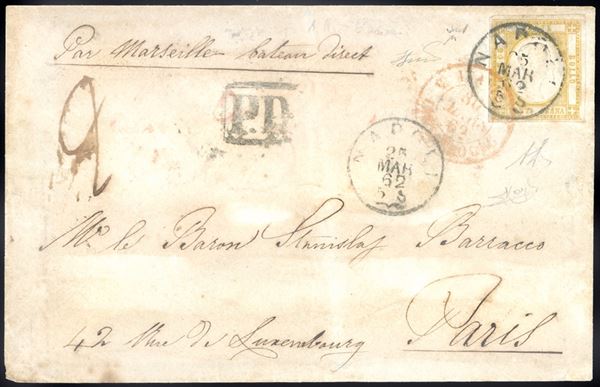 Par Marseille bateau direct
NAPOLI
25
MAR
62
5 S
BOLLO
GRANA
P.D.
2
NAPOLI
25
MAR
62
5 S
Mr. le Baron Stanislas Barracco
42 Rue de Luxembourg Paris